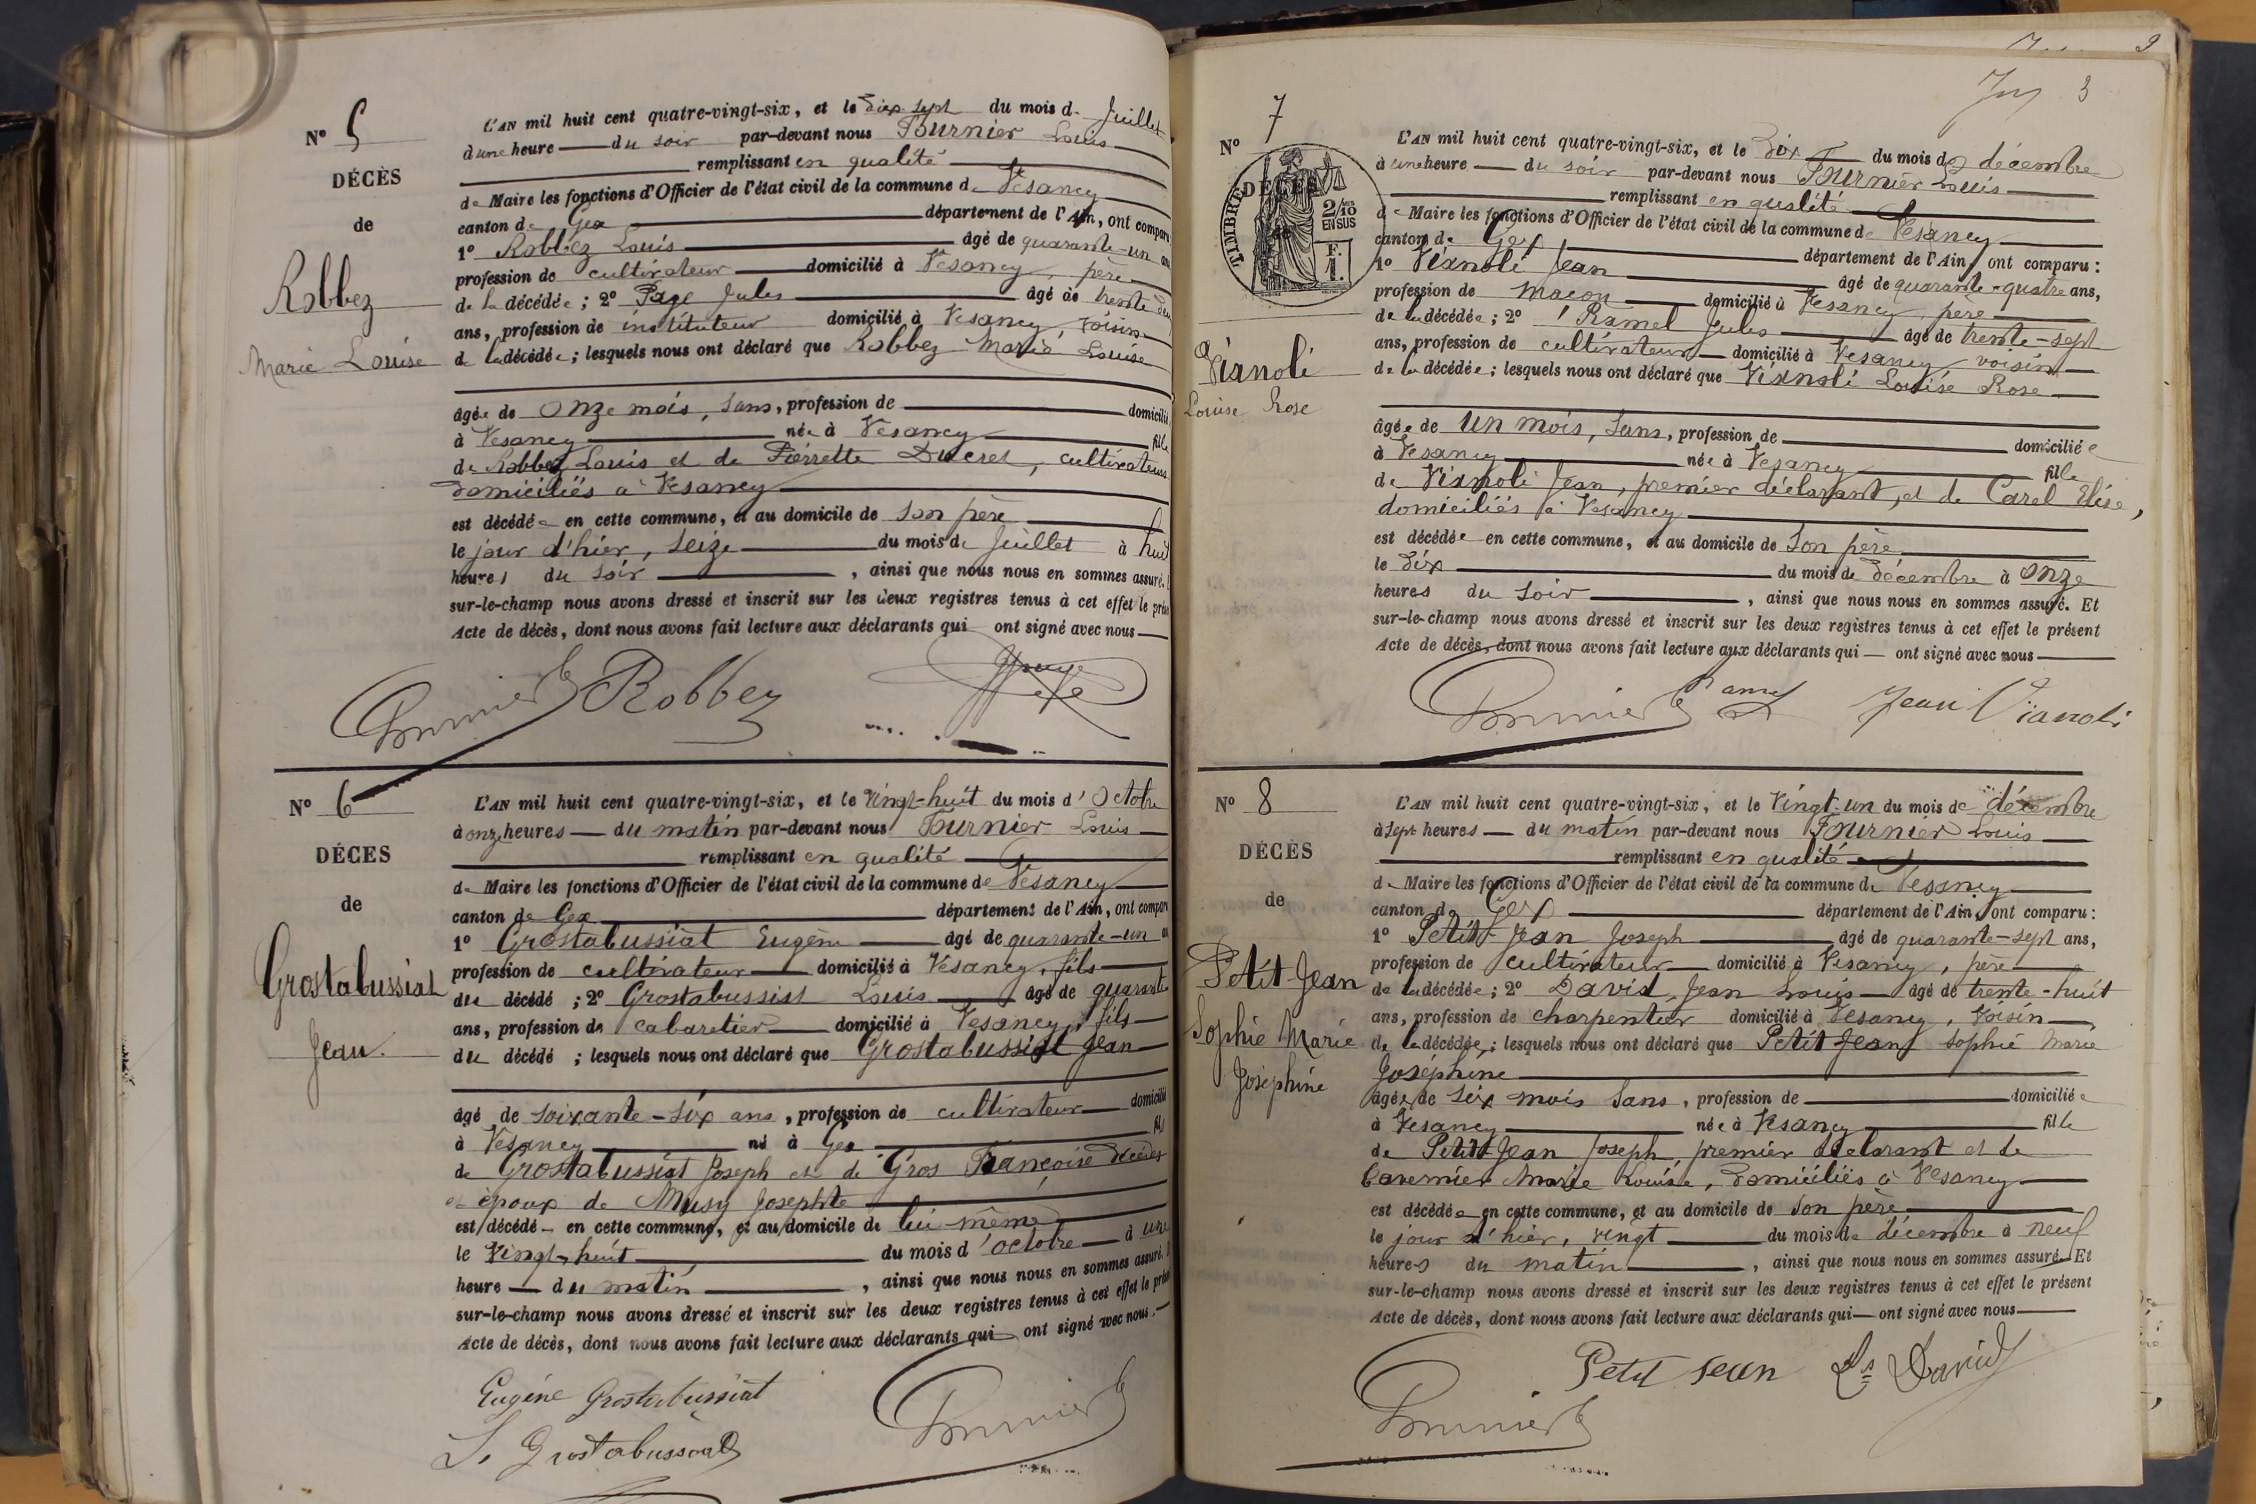 N° 5
DÉCÈS
de
Robbez
Marie Louise
L'AN mil huit cent quatre-vingt-six, et le dix-sept du mois de Juillet
à une heure du soir par-devant nous Fournier Louis
remplissant en qualité
de Maire les fonctions d'Officier de l'état civil de la commune de Vesancy
canton de Gex département de l'Ain, ont comparu
1° Robbez Louis âgé de quarante-un ans
profession de cultivateur domicilié à Vesancy, père
de la décédée ; 2° Page Jules âgé de trente deux
ans, profession de instituteur domicilié à Vesancy, voisin
de la décédée ; lesquels nous ont déclaré que Robbez Marie Louise
âgée de onze mois, sans, profession de domicilié
à Vesancy née à Vesancy fille
de Robbez Louis et de Pierrette Ducret, cultivateurs
domiciliés à Vesancy
est décédée en cette commune, et au domicile de son père
le jour d'hier, seize du mois de Juillet à huit
heures du soir , ainsi que nous nous en sommes assuré.
sur-le-champ nous avons dressé et inscrit sur les deux registres tenus à cet effet le prés
Acte de décès, dont nous avons fait lecture aux déclarants qui ont signé avec nous
Fournier L Robbez JPage
N° 6
DÉCES
de
Grostabussiat
Jean.
L'AN mil huit cent quatre-vingt-six, et le Vingt-huit du mois d'Octobre
à onze heures du matin par-devant nous Fournier Louis
remplissant en qualité
de Maire les fonctions d'Officier de l'état civil de la commune de Vesancy
canton de Gex département de l'Ain, ont comparu
1° Grostabussiat Eugène âgé de quarante-un a
profession de cultivateur domicilié à Vesancy, fils
du décédé ; 2° Grostabussiat Louis âgé de quarante
ans, profession de cabaretier domicilié à Vesancy, fils
du décédé ; lesquels nous ont déclaré que Grostabussiat Jean
âgé de soixante-six ans, profession de cultivateur domicilié
à Vesancy né à Gex fils
de Grostabussiat Joseph et de Gros Françoise décédés
et époux de Musy Josephte
est décédé en cette commune, et au domicile de lui-même
le Vingt-huit du mois d'octobre à une
heure du matin , ainsi que nous nous en sommes assuré.
sur-le-champ nous avons dressé et inscrit sur les deux registres tenus à cet effet le prés
Acte de décès, dont nous avons fait lecture aux déclarants qui ont signé avec nous.
Eugéne Grostabussiat
L. Grostabussiat
Fournier L
N° 7
DÉCÈS
TIMBRE
2/10 EN SUS
F. 1.
Vianoli
Louise Rose
3
L'AN mil huit cent quatre-vingt-six, et le Dix du mois de décembre
à une heure du soir par-devant nous Fournier Louis
remplissant en qualité
de Maire les fonctions d'Officier de l'état civil de la commune de Vesancy
canton de Gex département de l'Ain, ont comparu :
1° Vianoli Jean âgé de quarante-quatre ans,
profession de maçon domicilié à Vesancy, père
de la décédée ; 2° Ramel Jules âgé de trente-sept
ans, profession de cultivateur domicilié à Vesancy voisin
de la décédée ; lesquels nous ont déclaré que Vianoli Louise Rose
âgée de un mois, sans, profession de domiciliée
à Vesancy née à Vesancy fille
de Vianoli Jean, premier déclarant, et de Carel Elise,
domiciliés à Vesancy
est décédée en cette commune, et au domicile de son père
le Dix du mois de décembre à onze
heures du soir , ainsi que nous nous en sommes assuré. Et
sur-le-champ nous avons dressé et inscrit sur les deux registres tenus à cet effet le présent
Acte de décès, dont nous avons fait lecture aux déclarants qui ont signé avec nous
Fournier L Ramel J Jean Vianoli
N° 8
DÉCÈS
de
Petit-Jean
Sophie Marie
Joséphine
L'AN mil huit cent quatre-vingt-six, et le Vingt-un du mois de décembre
à sept heures du matin par-devant nous Fournier Louis
remplissant en qualité
de Maire les fonctions d'Officier de l'état civil de la commune de Vesancy
canton de Gex département de l'Ain, ont comparu :
1° Petit-Jean Joseph âgé de quarante-sept ans,
profession de cultivateur domicilié à Vesancy, père
de la décédée ; 2° David Jean Louis âgé de trente-huit
ans, profession de charpentier domicilié à Vesancy, Voisin
de la décédée ; lesquels nous ont déclaré que Petit Jean Sophie Marie
Joséphine
âgée de six mois sans, profession de domiciliée
à Vesancy née à Vesancy fille
de Petit-Jean Joseph, premier déclarant et de
Tavernier Marie Louise, domiciliés à Vesancy
est décédée en cette commune, et au domicile de son père
le jour d'hier, vingt du mois de décembre à neuf
heures du matin , ainsi que nous nous en sommes assuré. Et
sur-le-champ nous avons dressé et inscrit sur les deux registres tenus à cet effet le présent
Acte de décès, dont nous avons fait lecture aux déclarants qui ont signé avec nous
Petit Jean Ls David
Fournier L